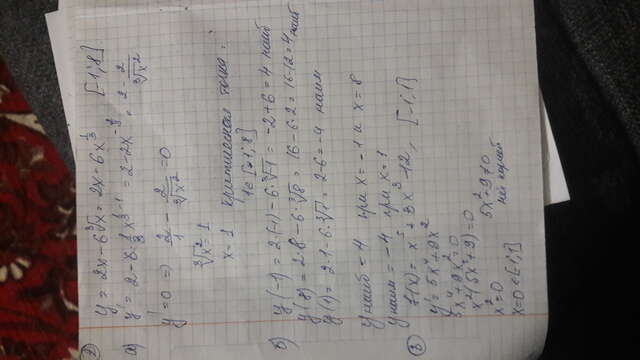 2) y = 2x - 6∛x = 2x - 6x^(1/3) [-1; 8]
а) y' = 2 - 6·(1/3)x^(1/3 - 1) = 2 - 2x^(-2/3) = 2 - 2/∛x²
y' = 0 => 2/1 - 2/∛x² = 0
∛x² = 1
x = 1 критическая точка:
1 ∈ [-1; 8]
б) y(-1) = 2·(-1) - 6·∛-1 = -2+6 = 4 наиб
y(8) = 2·8 - 6·∛8 = 16 - 6·2 = 16-12 = 4 наиб
y(1) = 2·1 - 6·∛1 = 2-6 = -4 наим
y наиб = 4 при x = -1 и x = 8
y наим = -4 при x = 1
3) f(x) = x⁵ + 3x³ - 12, [-1; 1]
y' = 5x⁴ + 9x²
5x⁴ + 9x² = 0
x²(5x² + 9) = 0
x² = 0 5x² + 9 ≠ 0
нет корней
x = 0 ∈ [-1; 1]